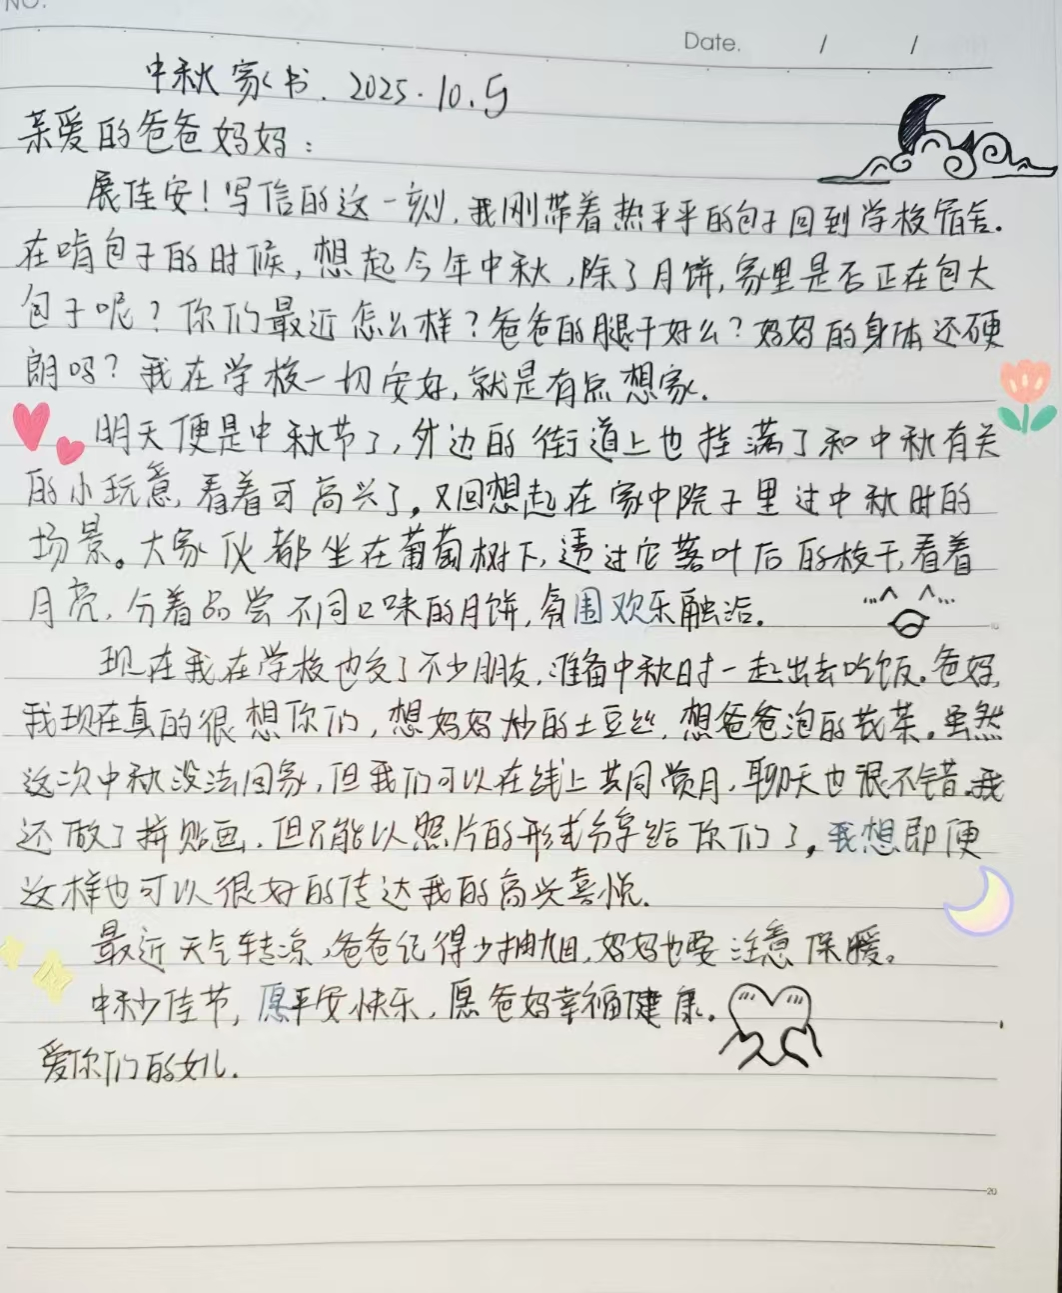 NO.
Date. / /
中秋家书. 2025.10.5
亲爱的爸爸妈妈：
展佳安！写信的这一刻，我刚带着热乎乎的包子回到学校宿舍.
在啃包子的时候，想起今年中秋，除了月饼，家里是否正在包大
包子呢？你们最近怎么样？爸爸的腿干好么？妈妈的身体还硬
朗吗？我在学校一切安好，就是有点想家.
明天便是中秋节了，外边的街道上也挂满了和中秋有关
的小玩意，看着可高兴了，又回想起在家中院子里过中秋时的
场景。大家伙都坐在葡萄树下，透过它落叶后的枝干，看着
月亮，分着品尝不同口味的月饼，氛围欢乐融洽。
现在我在学校也交了不少朋友，准备中秋时一起出去吃饭。爸妈，
我现在真的很想你们，想妈妈炒的土豆丝，想爸爸泡的花茶。虽然
这次中秋没法回家，但我们可以在线上共同赏月，聊天也很不错。我
还做了拼贴画，但只能以照片的形式分享给你们了，我想即便
这样也可以很好的传达我的高兴喜悦.
最近天气转凉，爸爸记得少抽烟，妈妈也要注意保暖。
中秋佳节，愿平安快乐，愿爸妈幸福健康.
爱你们的女儿.
20